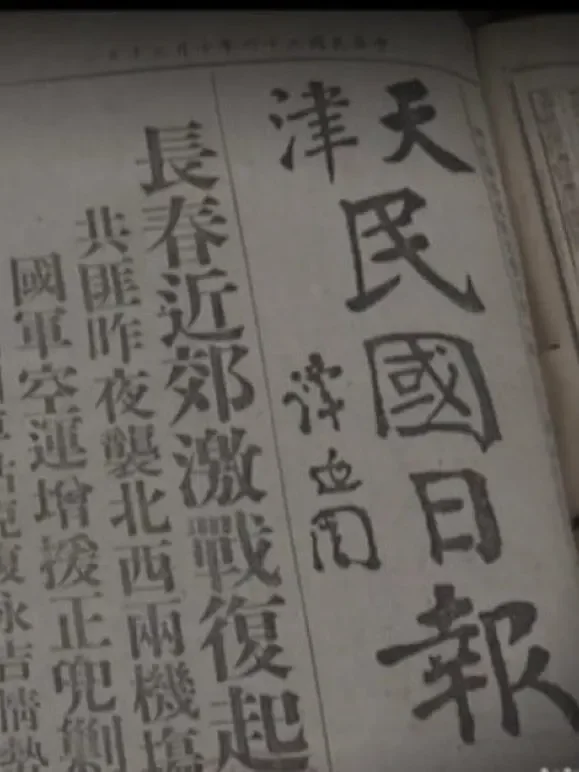 天津
民國日報
譚延闓
長春近郊激戰復起
共匪昨夜襲北西兩機塲
國軍空運增援正兜剿
永吉情勢